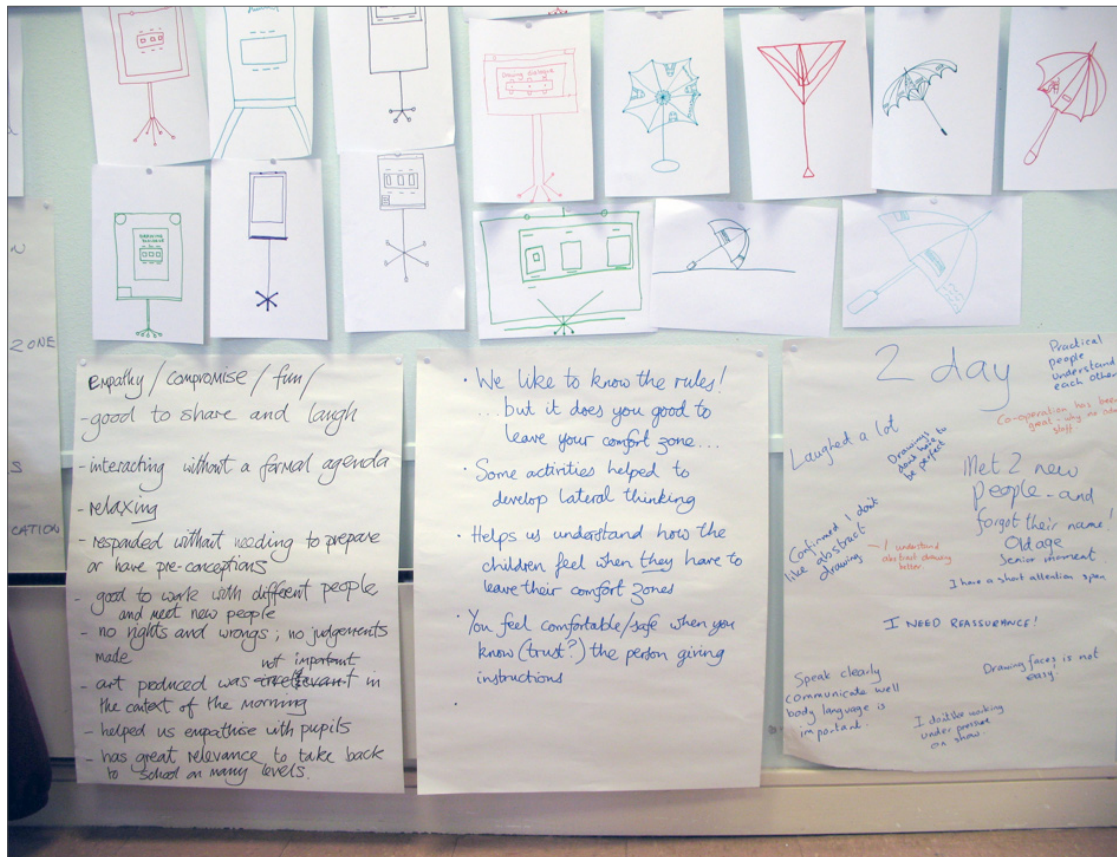 Drawing dialogue
N
ZONE
S
CATION
Empathy / compromise / fun /
- good to share and laugh
- interacting without a formal agenda
- relaxing
- responded without needing to prepare
or have pre-conceptions
- good to work with different people
and meet new people
- no rights and wrongs ; no judgements
made
not important
- art produced was irrelevant in
the context of the morning
- helped us empathise with pupils
- has great relevance to take back
to school on many levels.
· We like to know the rules!
...but it does you good to
leave your comfort zone...
· Some activities helped to
develop lateral thinking
· Helps us understand how the
children feel when they have to
leave their comfort zones
· You feel comfortable/safe when you
know (trust?) the person giving
instructions
2 day
Practical
people
understand
each other
Co-operation has been
great - why no other
staff.
Laughed a lot
Drawings
dont have to
be perfect
Met 2 new
people - and
forgot their name!
Old age
Senior moment
I have a short attention span
Confirmed I don't
like abstract
drawing
- I understand
abstract drawing
better.
I NEED REASSURANCE!
Speak clearly
communicate well
body language is
important.
Drawing faces is not
easy!
I don't like working
under pressure
on show.